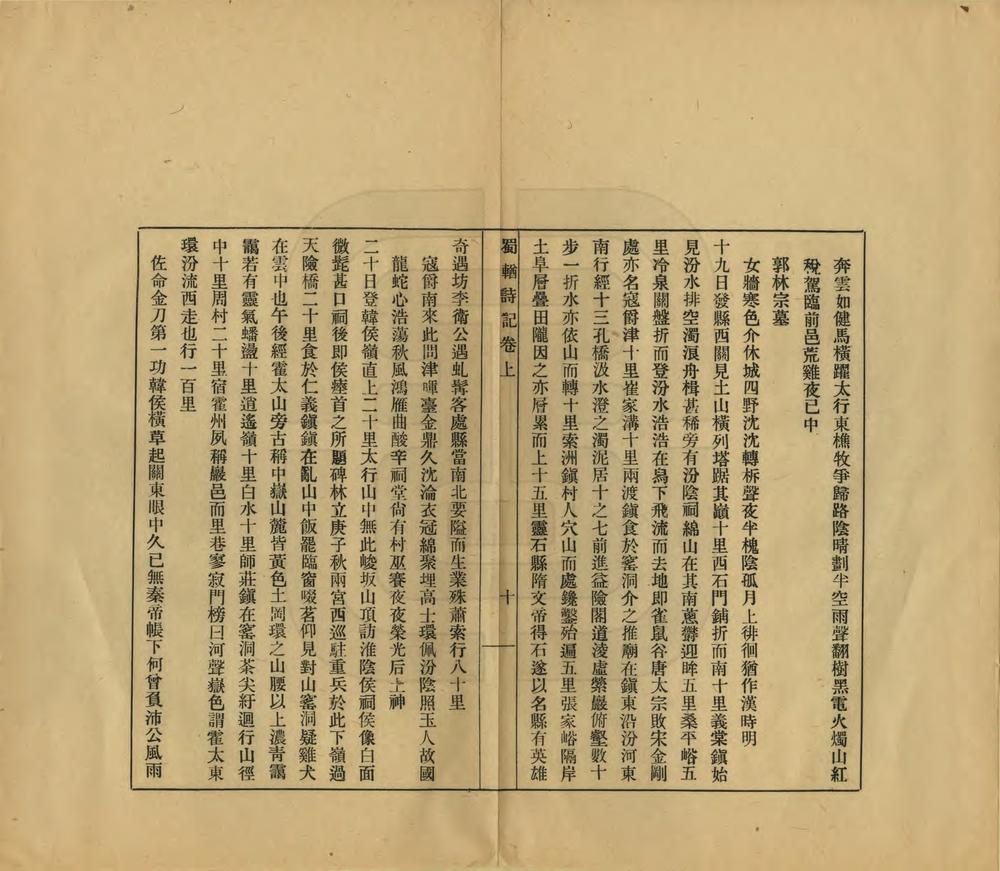 奔雲如健馬橫躍太行東樵牧爭歸路陰晴劃半空雨聲翻樹黑電火燭山紅
稅駕臨前邑荒雞夜已中
郭林宗墓
女牆寒色介休城四野沈沈轉柝聲夜半槐陰孤月上徘徊猶作漢時明
十九日發縣西關見土山橫列塔踞其巔十里西石門鋪折而南十里義棠鎮始
見汾水排空濁浪舟楫甚稀旁有汾陰祠綿山在其南蔥鬱迎眸五里桑平峪五
里冷泉關盤折而登汾水浩浩在舄下飛流而去地即雀鼠谷唐太宗敗宋金剛
處亦名寇爵津十里崔家溝十里兩渡鎮食於窰洞介之推廟在鎮東沿汾河東
南行經十三孔橋汲水澄之濁泥居十之七前進益險閣道淩虛縈巖俯壑數十
步一折水亦依山而轉十里索洲鎮村人穴山而處鑱鑿殆遍五里張家峪隔岸
土阜層疊田隴因之亦層累而上十五里靈石縣隋文帝得石遂以名縣有英雄
蜀輶詩記卷上
十
奇遇坊李衛公遇虬髯客處縣當南北要隘而生業殊蕭索行八十里
寇爵南來此問津暉臺金鼎久沈淪衣冠綿聚埋高士環佩汾陰照玉人故國
龍蛇心浩蕩秋風鴻雁曲酸辛祠堂尙有村巫賽夜夜榮光后土神
二十日登韓侯嶺直上二十里太行山中無此峻坂山頂訪淮陰侯祠侯像白面
微髭甚口祠後即侯瘞首之所題碑林立庚子秋兩宮西巡駐重兵於此下嶺過
天險橋二十里食於仁義鎮鎮在亂山中飯罷臨窗啜茗仰見對山窰洞疑雞犬
在雲中也午後經霍太山旁古稱中嶽山麓皆黃色土岡環之山腰以上濃靑靄
靄若有靈氣蟠盪十里逍遙嶺十里白水十里師莊鎮在窰洞茶尖紆迴行山徑
中十里周村二十里宿霍州夙稱巖邑而里巷寥寂門榜曰河聲嶽色謂霍太東
環汾流西走也行一百里
佐命金刀第一功韓侯橫草起關東眼中久已無秦帝帳下何曾負沛公風雨